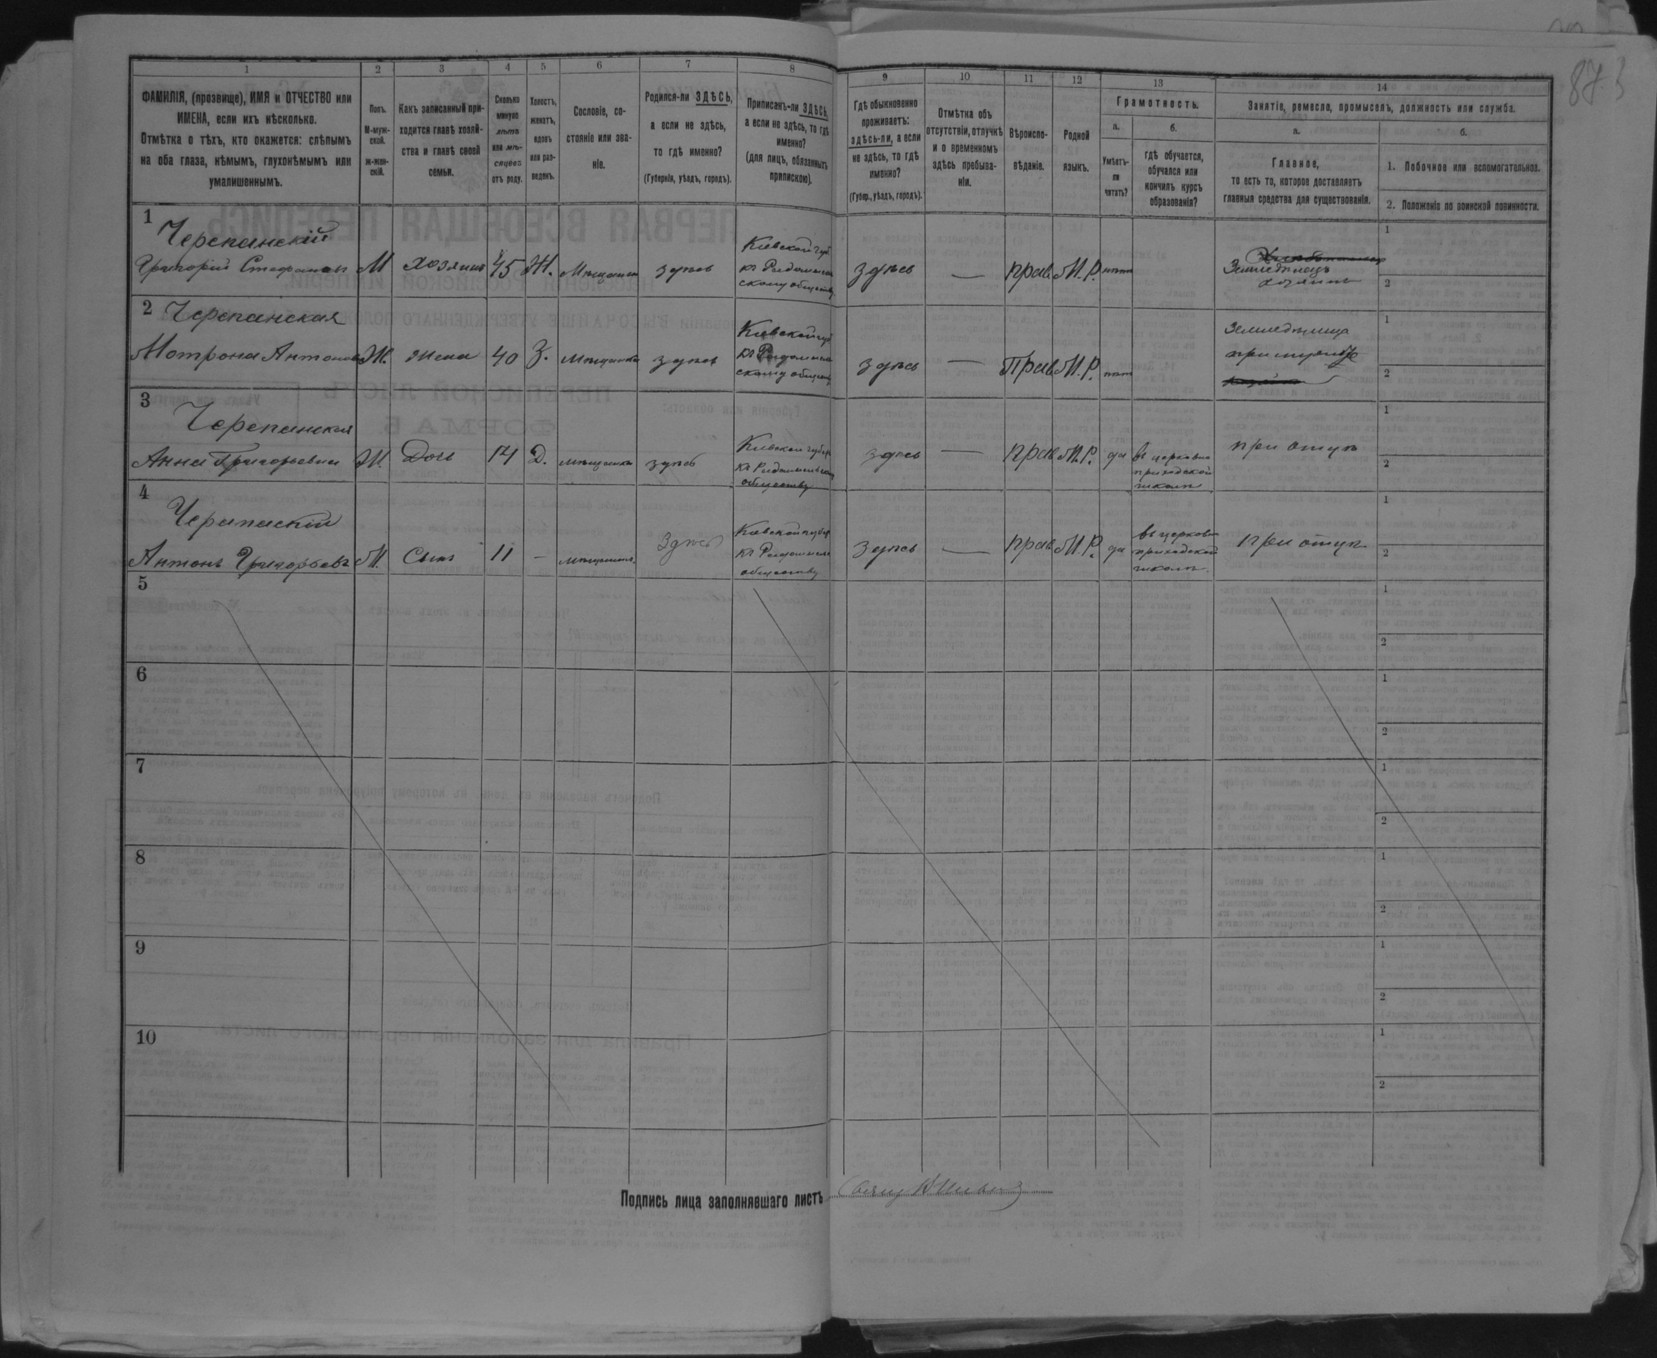 1 2 3 4 5 6 7 8 9 10 11 12 13 14
ФАМИЛІЯ, (прозвище), ИМЯ и ОТЧЕСТВО или
ИМЕНА, если ихъ нѣсколько.
Отмѣтка о тѣхъ, кто окажется: слѣпымъ
на оба глаза, нѣмымъ, глухонѣмымъ или
умалишеннымъ.
Полъ.
М-муж-
ской.
ж-жен-
скій.
Какъ записанный при-
ходится главѣ хозяй-
ства и главѣ своей
семьи.
Сколько
минуло
лѣтъ
или мѣ-
сяцевъ
отъ роду.
Холостъ,
женатъ,
вдовъ
или раз-
веденъ.
Сословіе, со-
стояніе или зва-
ніе.
Родился-ли ЗДѢСЬ,
а если не здѣсь,
то гдѣ именно?
(Губернія, уѣздъ, городъ).
Приписанъ-ли ЗДѢСЬ,
а если не здѣсь, то гдѣ
именно?
(для лицъ, обязанныхъ
припискою).
Гдѣ обыкновенно
проживаетъ:
здѣсь-ли, а если
не здѣсь, то гдѣ
именно?
(Губер., уѣздъ, городъ).
Отмѣтка объ
отсутствіи, отлучкѣ
и о временномъ
здѣсь пребыва-
ніи.
Вѣроиспо-
вѣданіе.
Родной
языкъ.
Грамотность.
а.
Умѣетъ-
ли
читать?
б.
гдѣ обучается,
обучался или
кончилъ курсъ
образованія?
Занятіе, ремесло, промыселъ, должность или служба.
а.
Главное,
то есть то, которое доставляетъ
главныя средства для существованія.
б.
1. Побочное или вспомогательное.
2. Положеніе по воинской повинности.
1
Черепанскій
Григорій Стефановъ М хозяинъ 45 Ж. Мѣщанинъ здѣсь
Кіевской губ
скому обществу
здѣсь — прав. М.Р. нѣтъ
Земледѣлецъ
хозяинъ
1
2
2 Черепанская
Мотрона Антонова Ж. жена 40 З. мѣщанка здѣсь
Кіевской губ
скому обществу
здѣсь — Прав. М.Р. нѣтъ
земледѣлица
при мужѣ
1
2
3
Черепанская
Анна Григорьевна Ж. Дочь 14 Д. мѣщанка здѣсь
Кіевской губер
обществу
здѣсь — прав. М.Р. да
въ церковно
приходской
школѣ
при отцѣ
1
2
4
Черепаскій
Антонъ Григорьевъ М. Сынъ 11 — мѣщанинъ здѣсь
Кіевской губер
обществу
здѣсь — прав. М.Р. да
въ церковно
приходской
школѣ
при отцѣ
1
2
5
1
2
6
1
2
7
1
2
8
1
2
9
1
2
10
1
2
Подпись лица заполнявшаго листъ